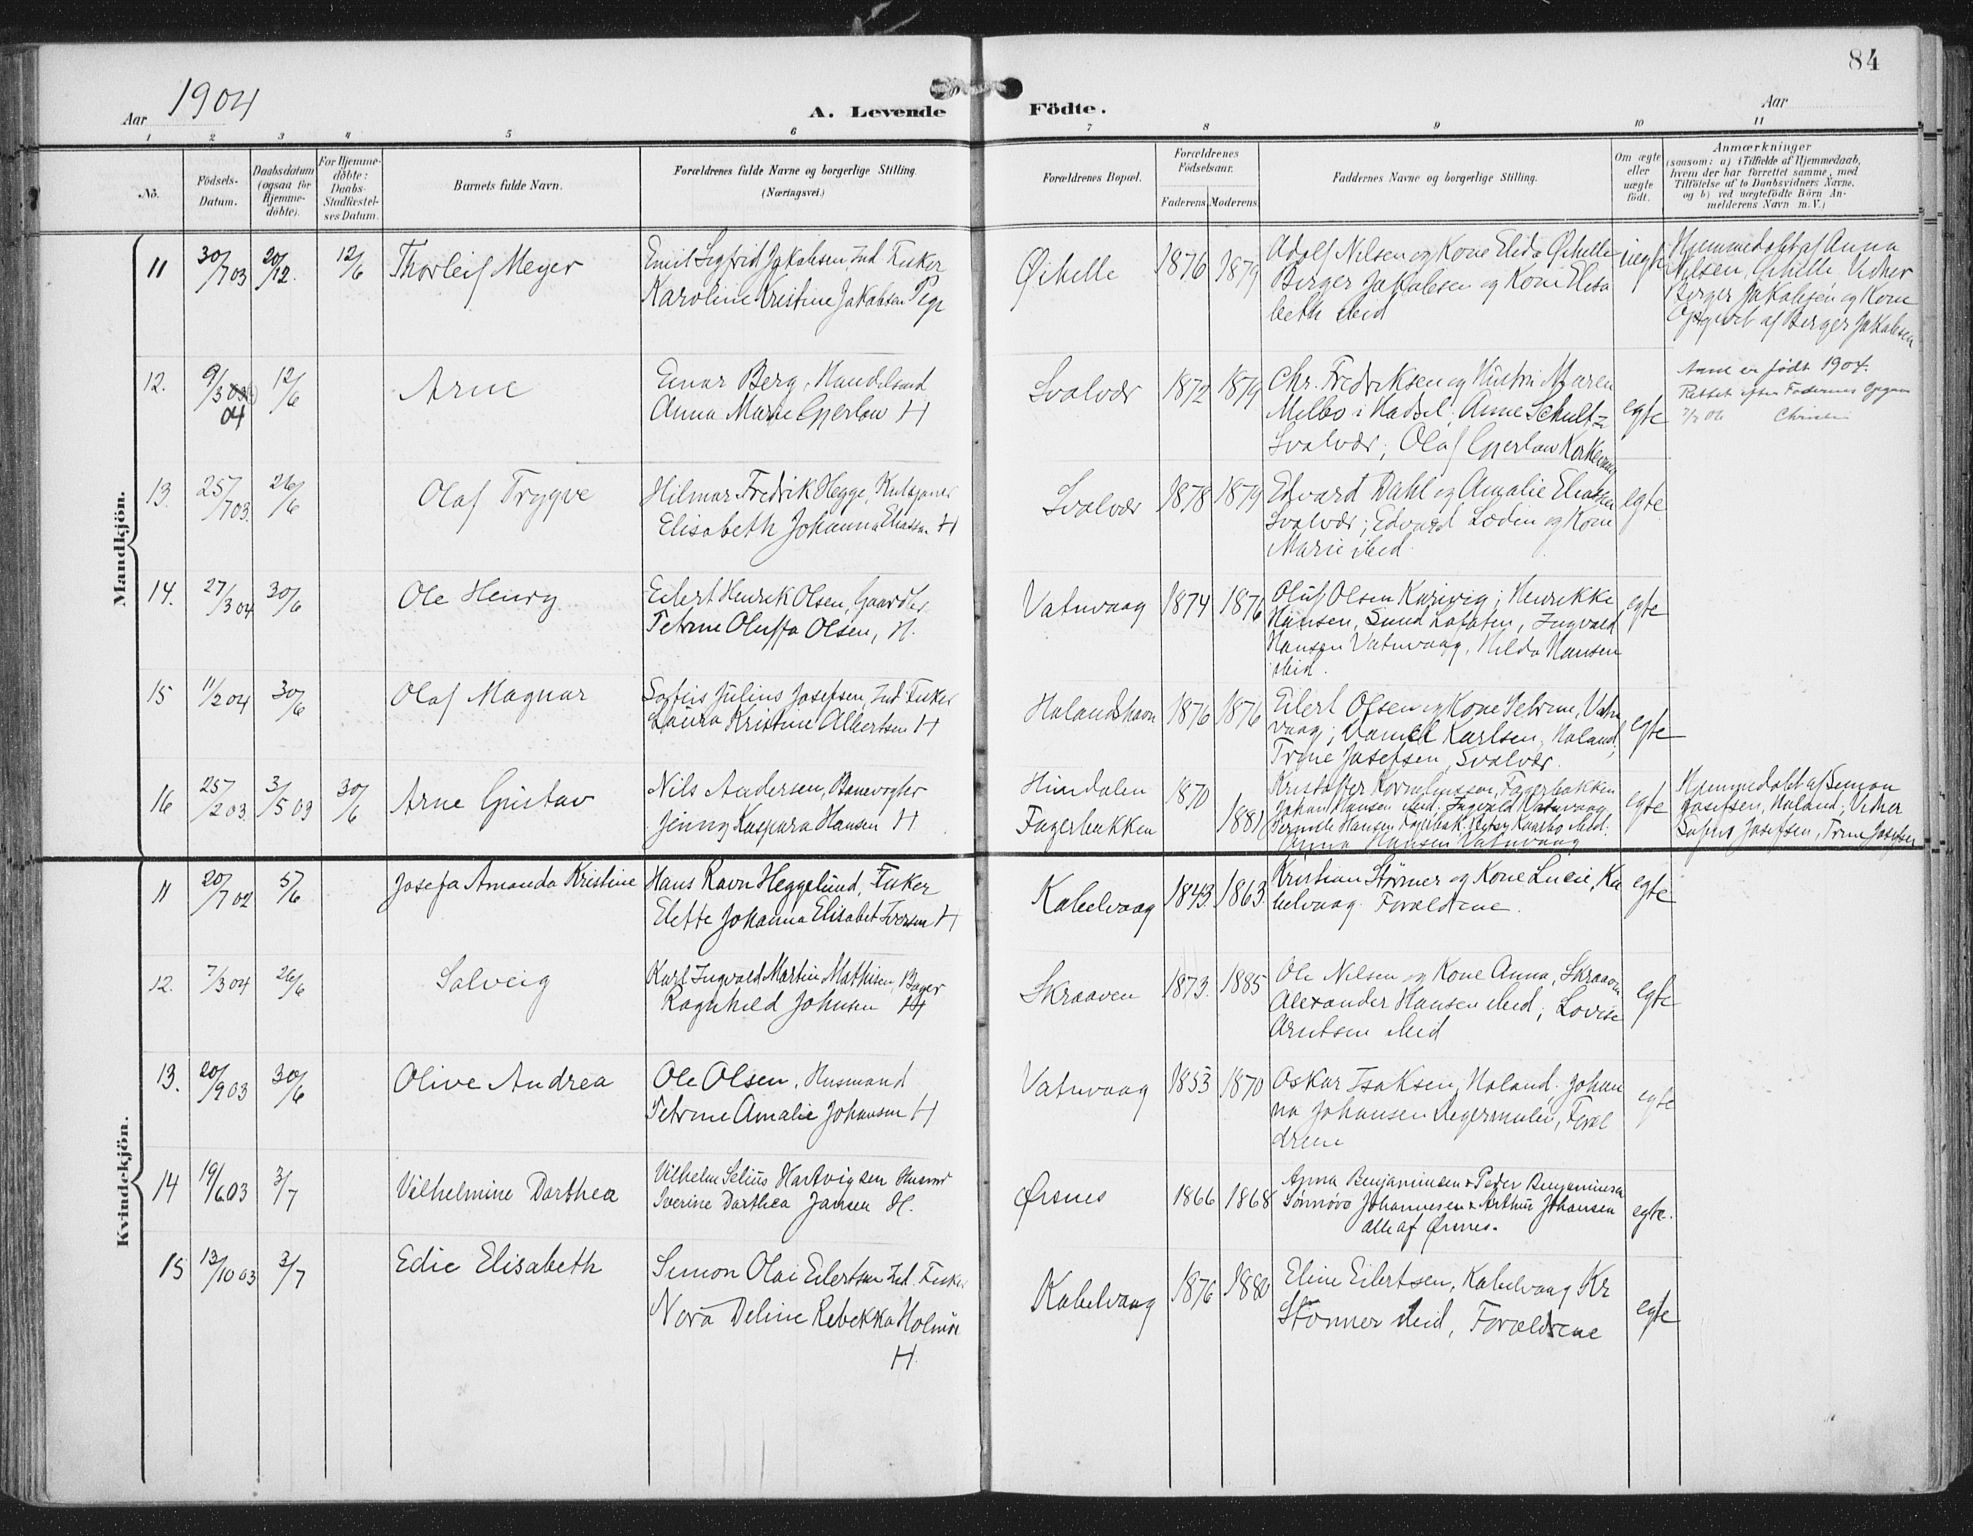 84
Aar 1904
A. Levende Födte.
Aar
1 2 3 4 5 6 7 8 9 10 11
No.
Födsels-Datum.
Daabsdatum (ogsaa for Hjemme-döbte).
For Hjemme-döbte: Daabs-Stadfæstel-ses Datum.
Barnets fulde Navn.
Forældrenes fulde Navne og borgerlige Stilling (Næringsvei.)
Forældrenes Bopæl.
Forældrenes Födselsaar.
Faderens. Moderens.
Faddernes Navne og borgerlige Stilling.
Om ægte eller uægte födt.
Anmærkninger
(saasom: a) i Tilfælde af Hjemmedaab,
hvem der har forrettet samme, med
Tilföielse af to Daabsvidners Navne.
og b) ved uægtefödte Börn An-
melderens Navn m. V.)
Mandkjön.
11 30/7 03 20/12. 12/6 Thorleif Meyer
Emil Sigfrid Jakobsen, Ind. Fisker
Karoline Kristine Jakobsen Pige
Öihelle 1876 1879
Adolf Nilsen og Kone Elida Öihelle
Berger Jakobsen og Kone Elisa
beth ibid
uegte
Hjemmedøbt af Anna
Nilsen, Öihelle. Vidner
Berger Jakobsen og Kone
Opgivet af Berger Jakobsen
12. 9/3 03 04 12/6 Arne
Einar Berg, Handelsmd
Anna Marie Gjerløw H
Svolvær 1872 1879
Chr. Fredriksen og Hustru Maren
Melbo i Hadsel; Anne Schultz
Svolvær; Olaf Gjerløw
egte
Arne er født 1904.
Rettet efter Faderens Opgave
13. 25/7 03. 26/6 Olaf Trygve
Hilmar Fredrik Hegge,
Elisabeth Johanna Eliassen H
Svolvær 1878 1879
Edvard Dahl og Amalie Eliassen
Svolvær; Edvard Lodin og Kone
Marie ibid.
egte
14. 27/3 04 30/6 Ole Henry
Eilert Henrik Olsen, Gaardbr.
Petrine Oluffa Olsen, H.
Vatnvaag 1874 1876
Oluf Olsen ; Henrikke
Hansen, Sund Lofoten, Ingvald
Hansen Vatnvaag, Hilda Hansen
ibid.
egte
15 11/2 04 30/6 Olaf Magnar
Sofus Julius Josefsen, Ind. Fisker
Laura Kristine Albertsen H
Holandshavn 1876 1876
Eilert Olsen og Kone Petrine, Vatn
vaag; Daniel Karlsen, Holand,
Trine Josefsen, Svolvær.
egte
16 25/2 03 3/5 03 30/6 Arne Gustav
Nils Andersen, Banevogter
Jenny Kaspara Hansen H
Hundalen 1870
Fagerbakken 1881
Kristoffer Korneliussen, Fagerbakken
Johan Hansen ibid. Ingvald Vatnvaag
Pernille Hansen
Anna Hansen Vatnvaag
egte
Hjemmedøbt af Simon
Josefsen, Holand. Vidner
Sofus Josefsen, Trine Josefsen
Kvindekjön.
11 20/7 02 5/6 Josefa Amanda Kristine
Hans Ravn Heggelund, Fisker
Elette Johanna Elisabet Iversen H
Kabelvaag 1843 1863
Kristian Störmer og Kone Lucie, Ka
belvaag. Forældrene.
egte
12. 7/3 04 26/6 Solveig
Karl Ingvald Martin Mathisen, Bager
Ragnhild Johnsen H
Skraaven 1873. 1885
Ole Nilsen og Kone Anna, Skraaven
Alexander Hansen ibid; Lovise
Arntsen ibid
egte
13. 20/9 03 30/6 Olive Andrea
Ole Olsen, Husmand
Petrine Amalie Johansen H
Vatnvaag 1853 1870
Oskar Isaksen, Holand. Johan
na Johansen Digermulen, Foræl
drene
egte
14 19/6 03 3/7 Vilhelmine Dorthea
Vilhelm Selius Hartvigsen Husmd
Iverine Dorthea Jansen H.
Örsnes 1866 1868
Anna Benjaminsen & Peder Benjaminsen
Sönnöva Johannesen & Arthur Johansen
alle af Örsnes.
egte.
15 13/10 03 3/7 Edie Elisabeth
Simon Olai Eilertsen Ind. Fisker
Nora Deline Rebekka Holmös
H
Kabelvaag 1876 1880
Eline Eilertsen, Kabelvaag Kr
Störmer ibid, Forældrene
egte